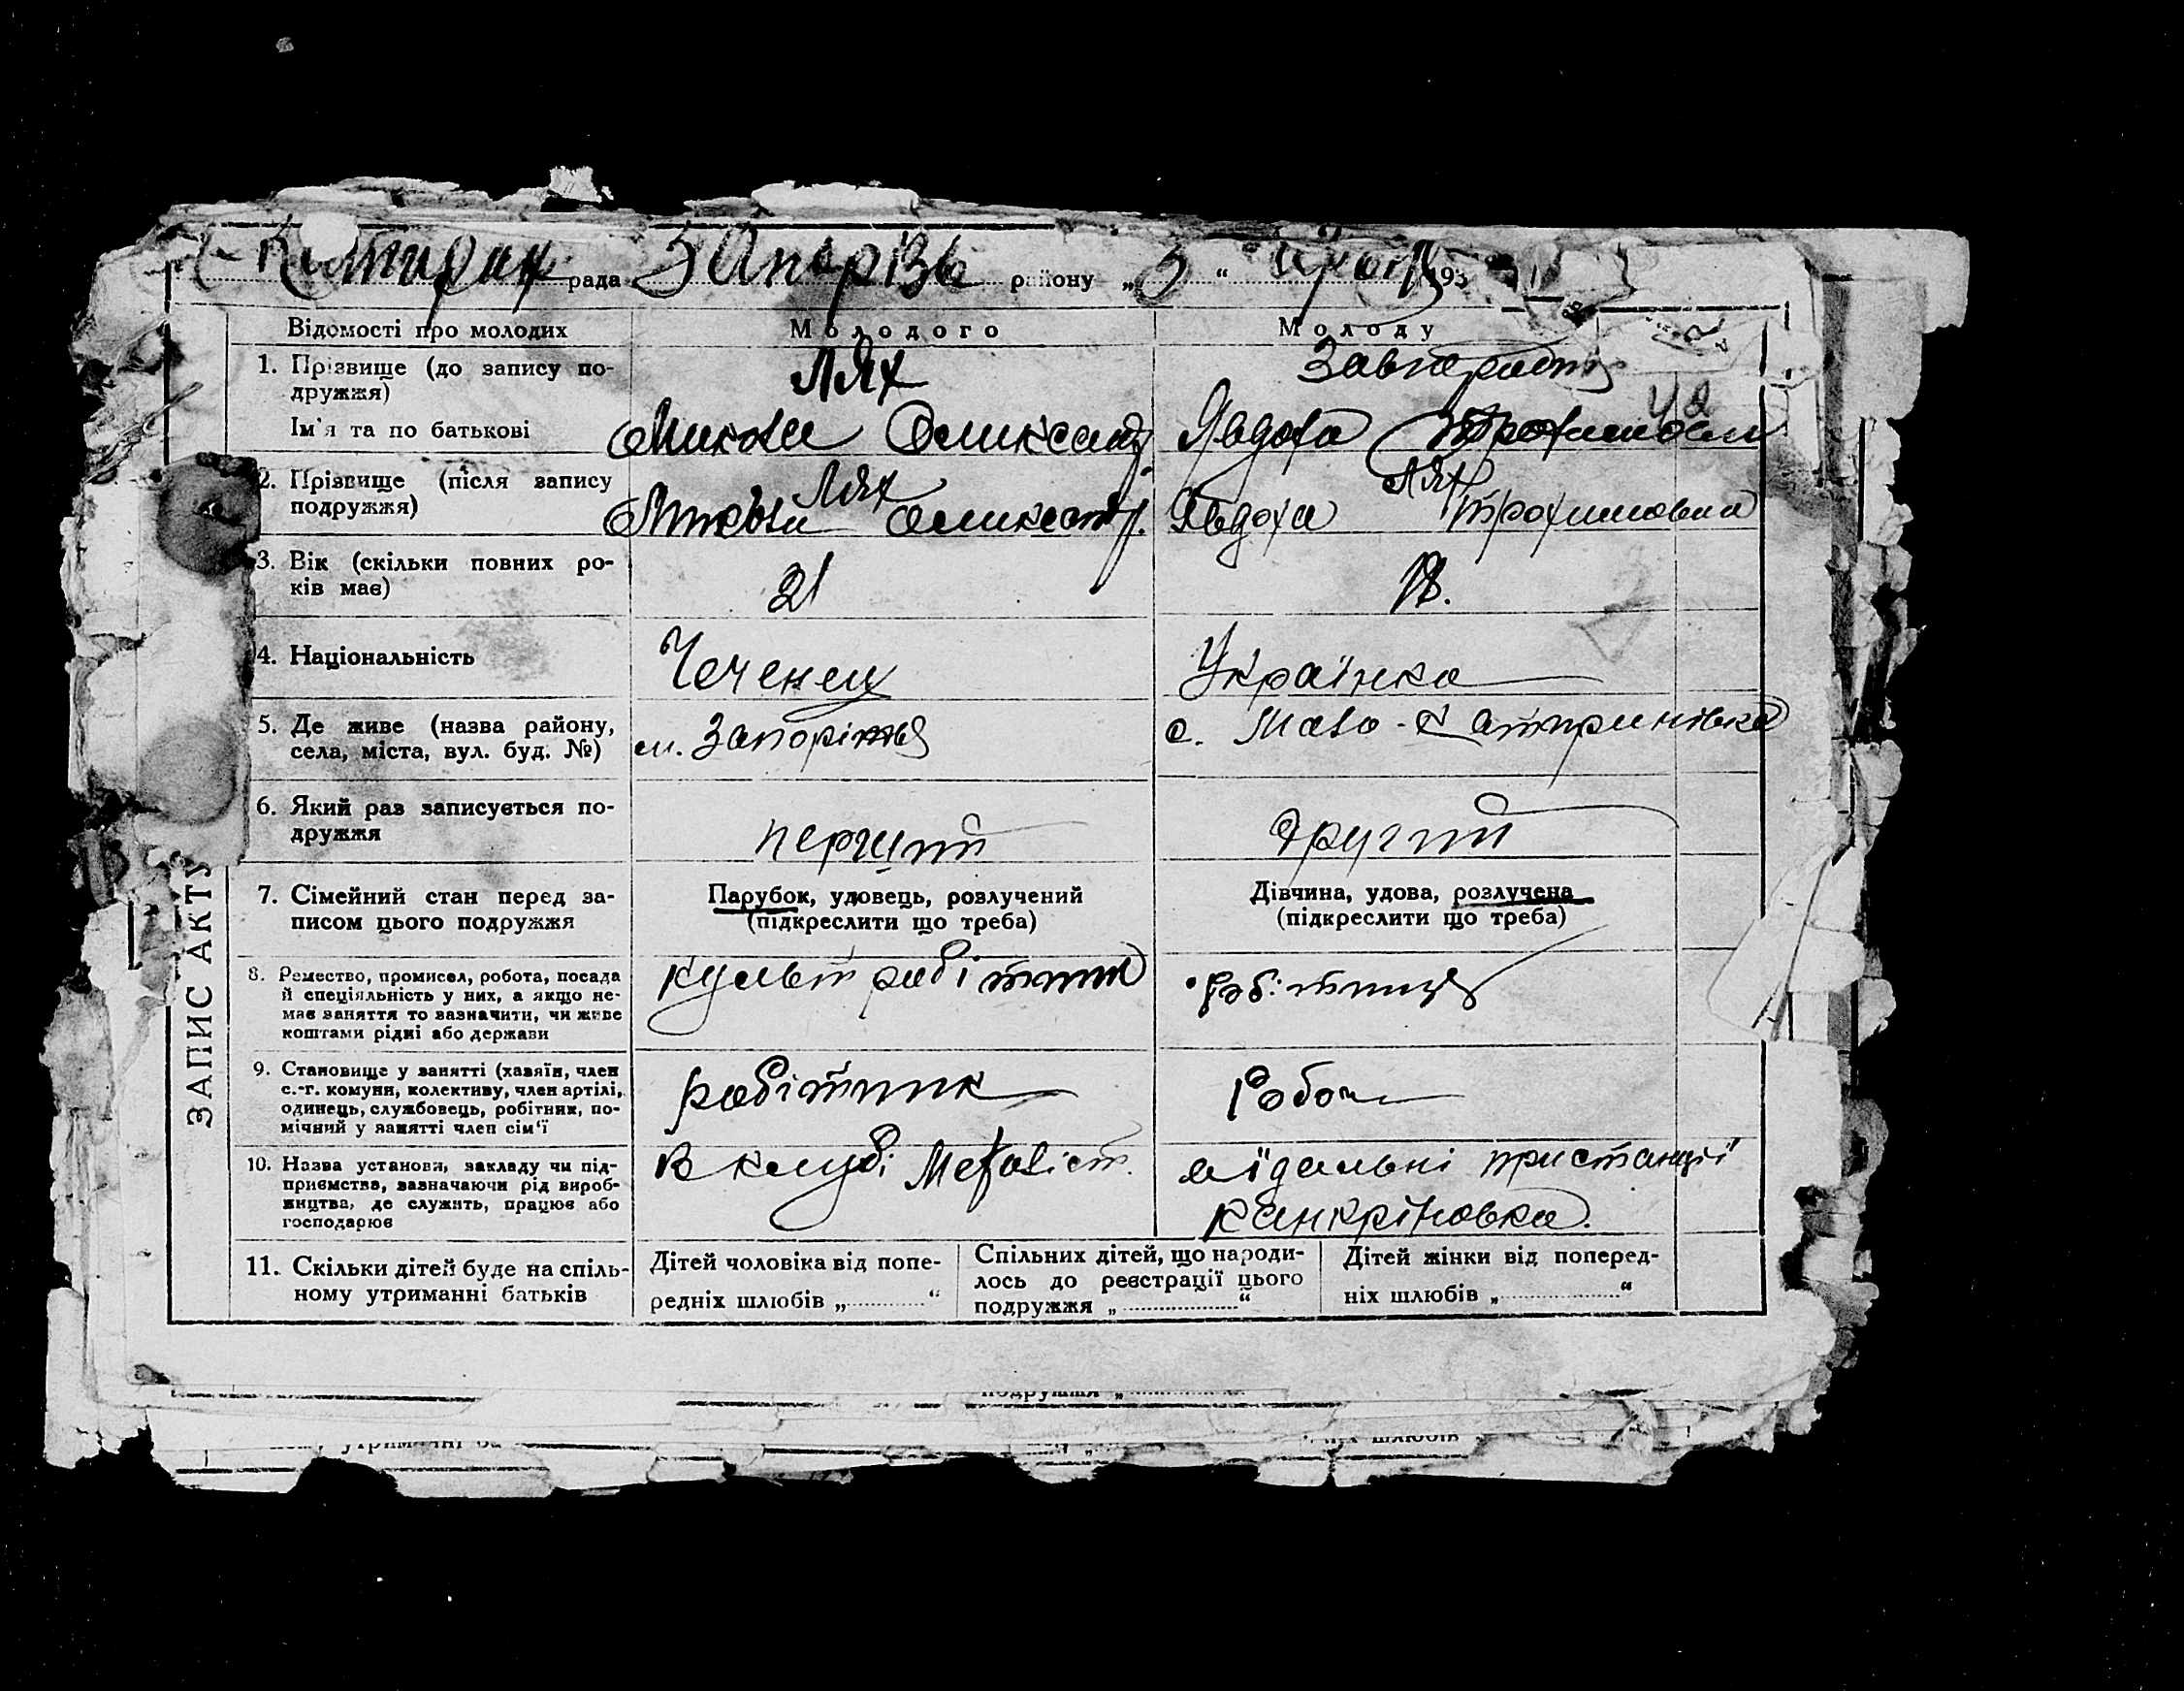 рада Запорізь району „ 3 “ 193
Відомості про молодих Молодого Молоду
1. Прізвище (до запису по- Лях
дружжя)
Ім'я та по батькові Микола Олександ. Явдоха Трохимовна
2. Прізвище (після запису Лях Лях
подружжя) Микола Олександ. Явдоха Трохимовна
3. Вік (скільки повних ро- 21 18.
ків має)
4. Національність Чеченец Українка
5. Де живе (назва району, м. Запоріжжя с. Мало-Катиринівка
села, міста, вул. буд. №)
6. Який раз записується по- перший другий
дружжя
7. Сімейний стан перед за- Парубок, удовець, розлучений Дівчина, удова, розлучена
писом цього подружжя (підкреслити що треба) (підкреслити що треба)
8. Ремество, промисел, робота, посада культробітник робітниця
й спеціяльність у них, а якщо не-
має заняття то зазначити, чи живе
коштами рідні або держави
9. Становище у занятті (хазяїн, член робітник
с.-г. комуни, колективу, член артілі,
одинець, службовець, робітник, по-
мічний у занятті член сім'ї
10. Назва установи, закладу чи під- В клубі Металіст. їдальні пристанції
приємства, зазначаючи рід вироб- Канкріновка.
ництва, де служить, працює або
господарює
11. Скільки дітей буде на спіль- Дітей чоловіка від попе- Спільних дітей, що народи- Дітей жінки від поперед-
ному утриманні батьків редніх шлюбів „ “ лось до реєстрації цього ніх шлюбів „ “
подружжя „ “
ЗАПИС АКТУ
подружжя „